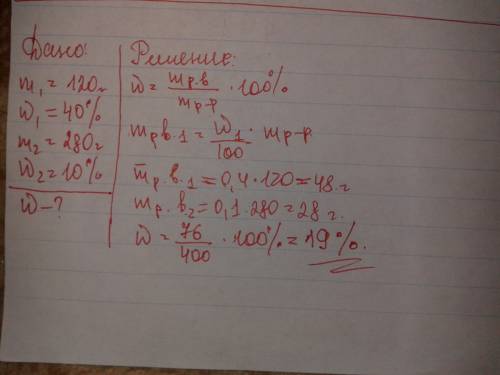 Дано:
m₁ = 120г
W₁ = 40%
m₂ = 280г
W₂ = 10%
W – ?
Решение:
W = mр.в / mр-р · 100%
mрв.1 = W₁/100 · mр-р
mр.в.₁ = 0,4·120 = 48.г
mр.в₂ = 0,1.280 = 28 г.
W = 76/400 · 100% = 19%.